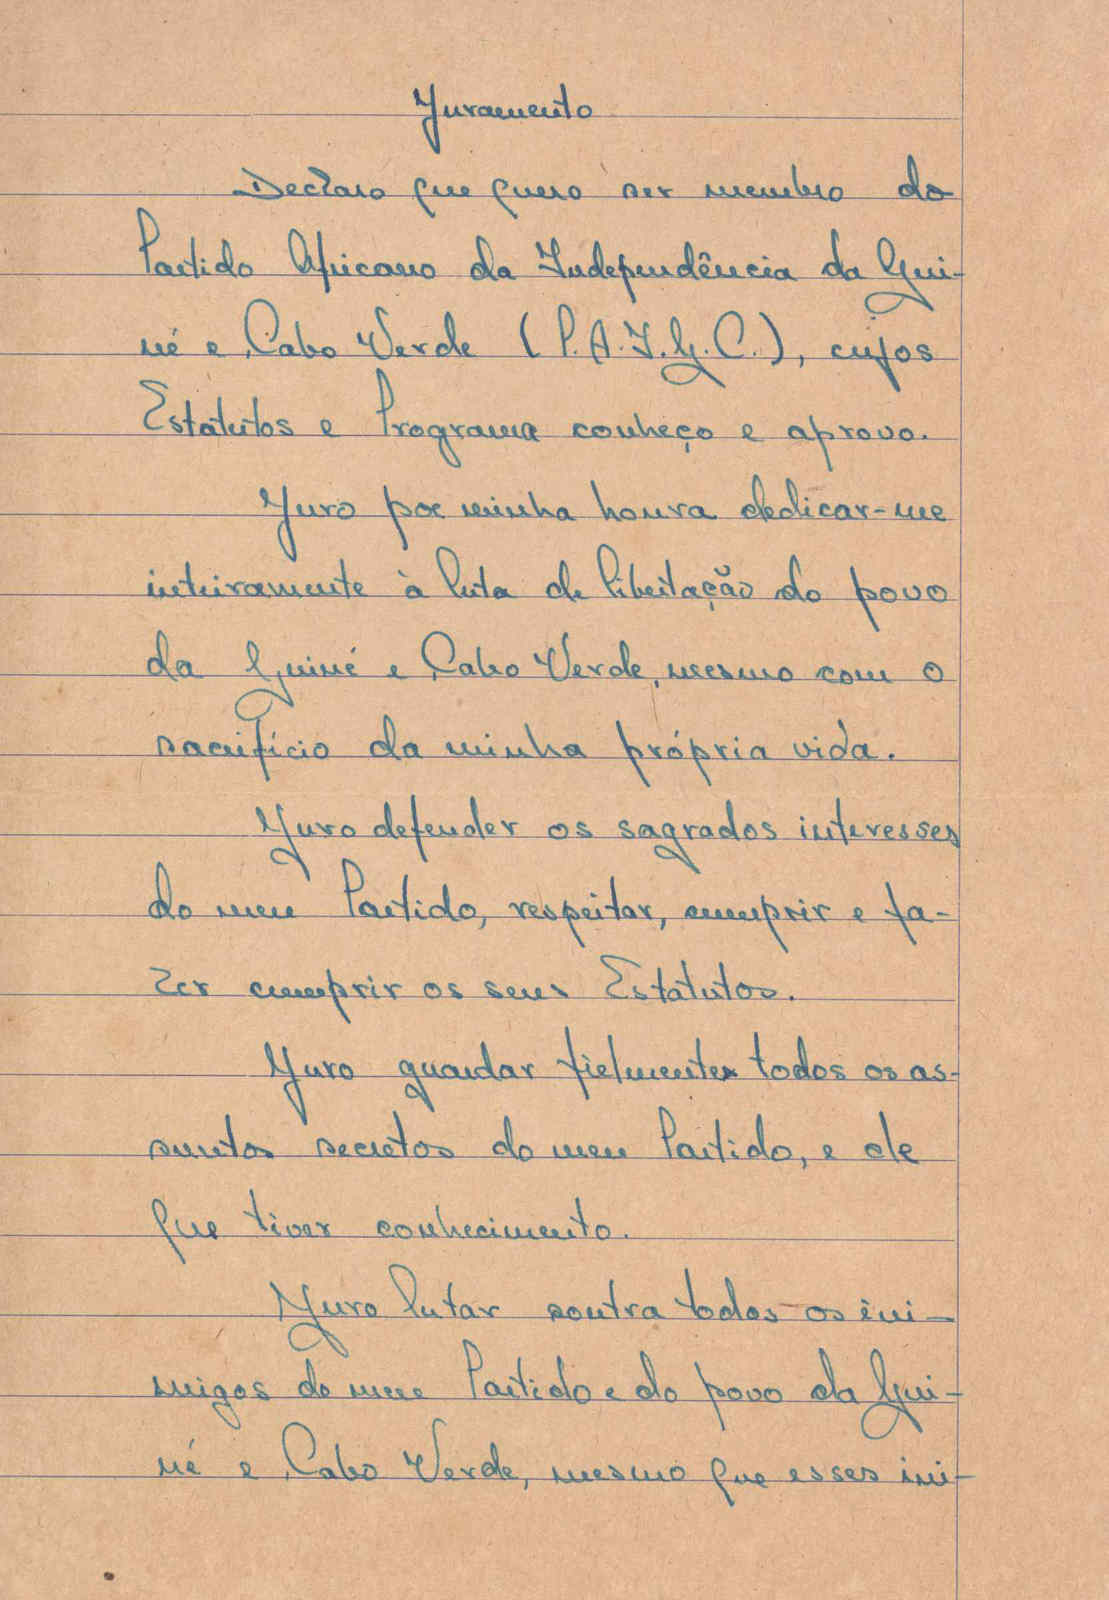 Juramento
Declaro que quero ser membro do
Partido Africano da Independência da Gui-
né e Cabo Verde (P.A.I.G.C.), cujos
Estatutos e Programa conheço e aprovo.
Juro por minha honra dedicar-me
inteiramente à luta de libertação do povo
da Guiné e Cabo Verde, mesmo com o
sacrifício da minha própria vida.
Juro defender os sagrados interesses
do meu Partido, respeitar, cumprir e fa-
zer cumprir os seus Estatutos.
Juro guardar fielmente todos os as-
suntos secretos do meu Partido, e de
que tiver conhecimento.
Juro lutar contra todos os ini-
migos do meu Partido e do povo da Gui-
né e Cabo Verde, mesmo que esses ini-